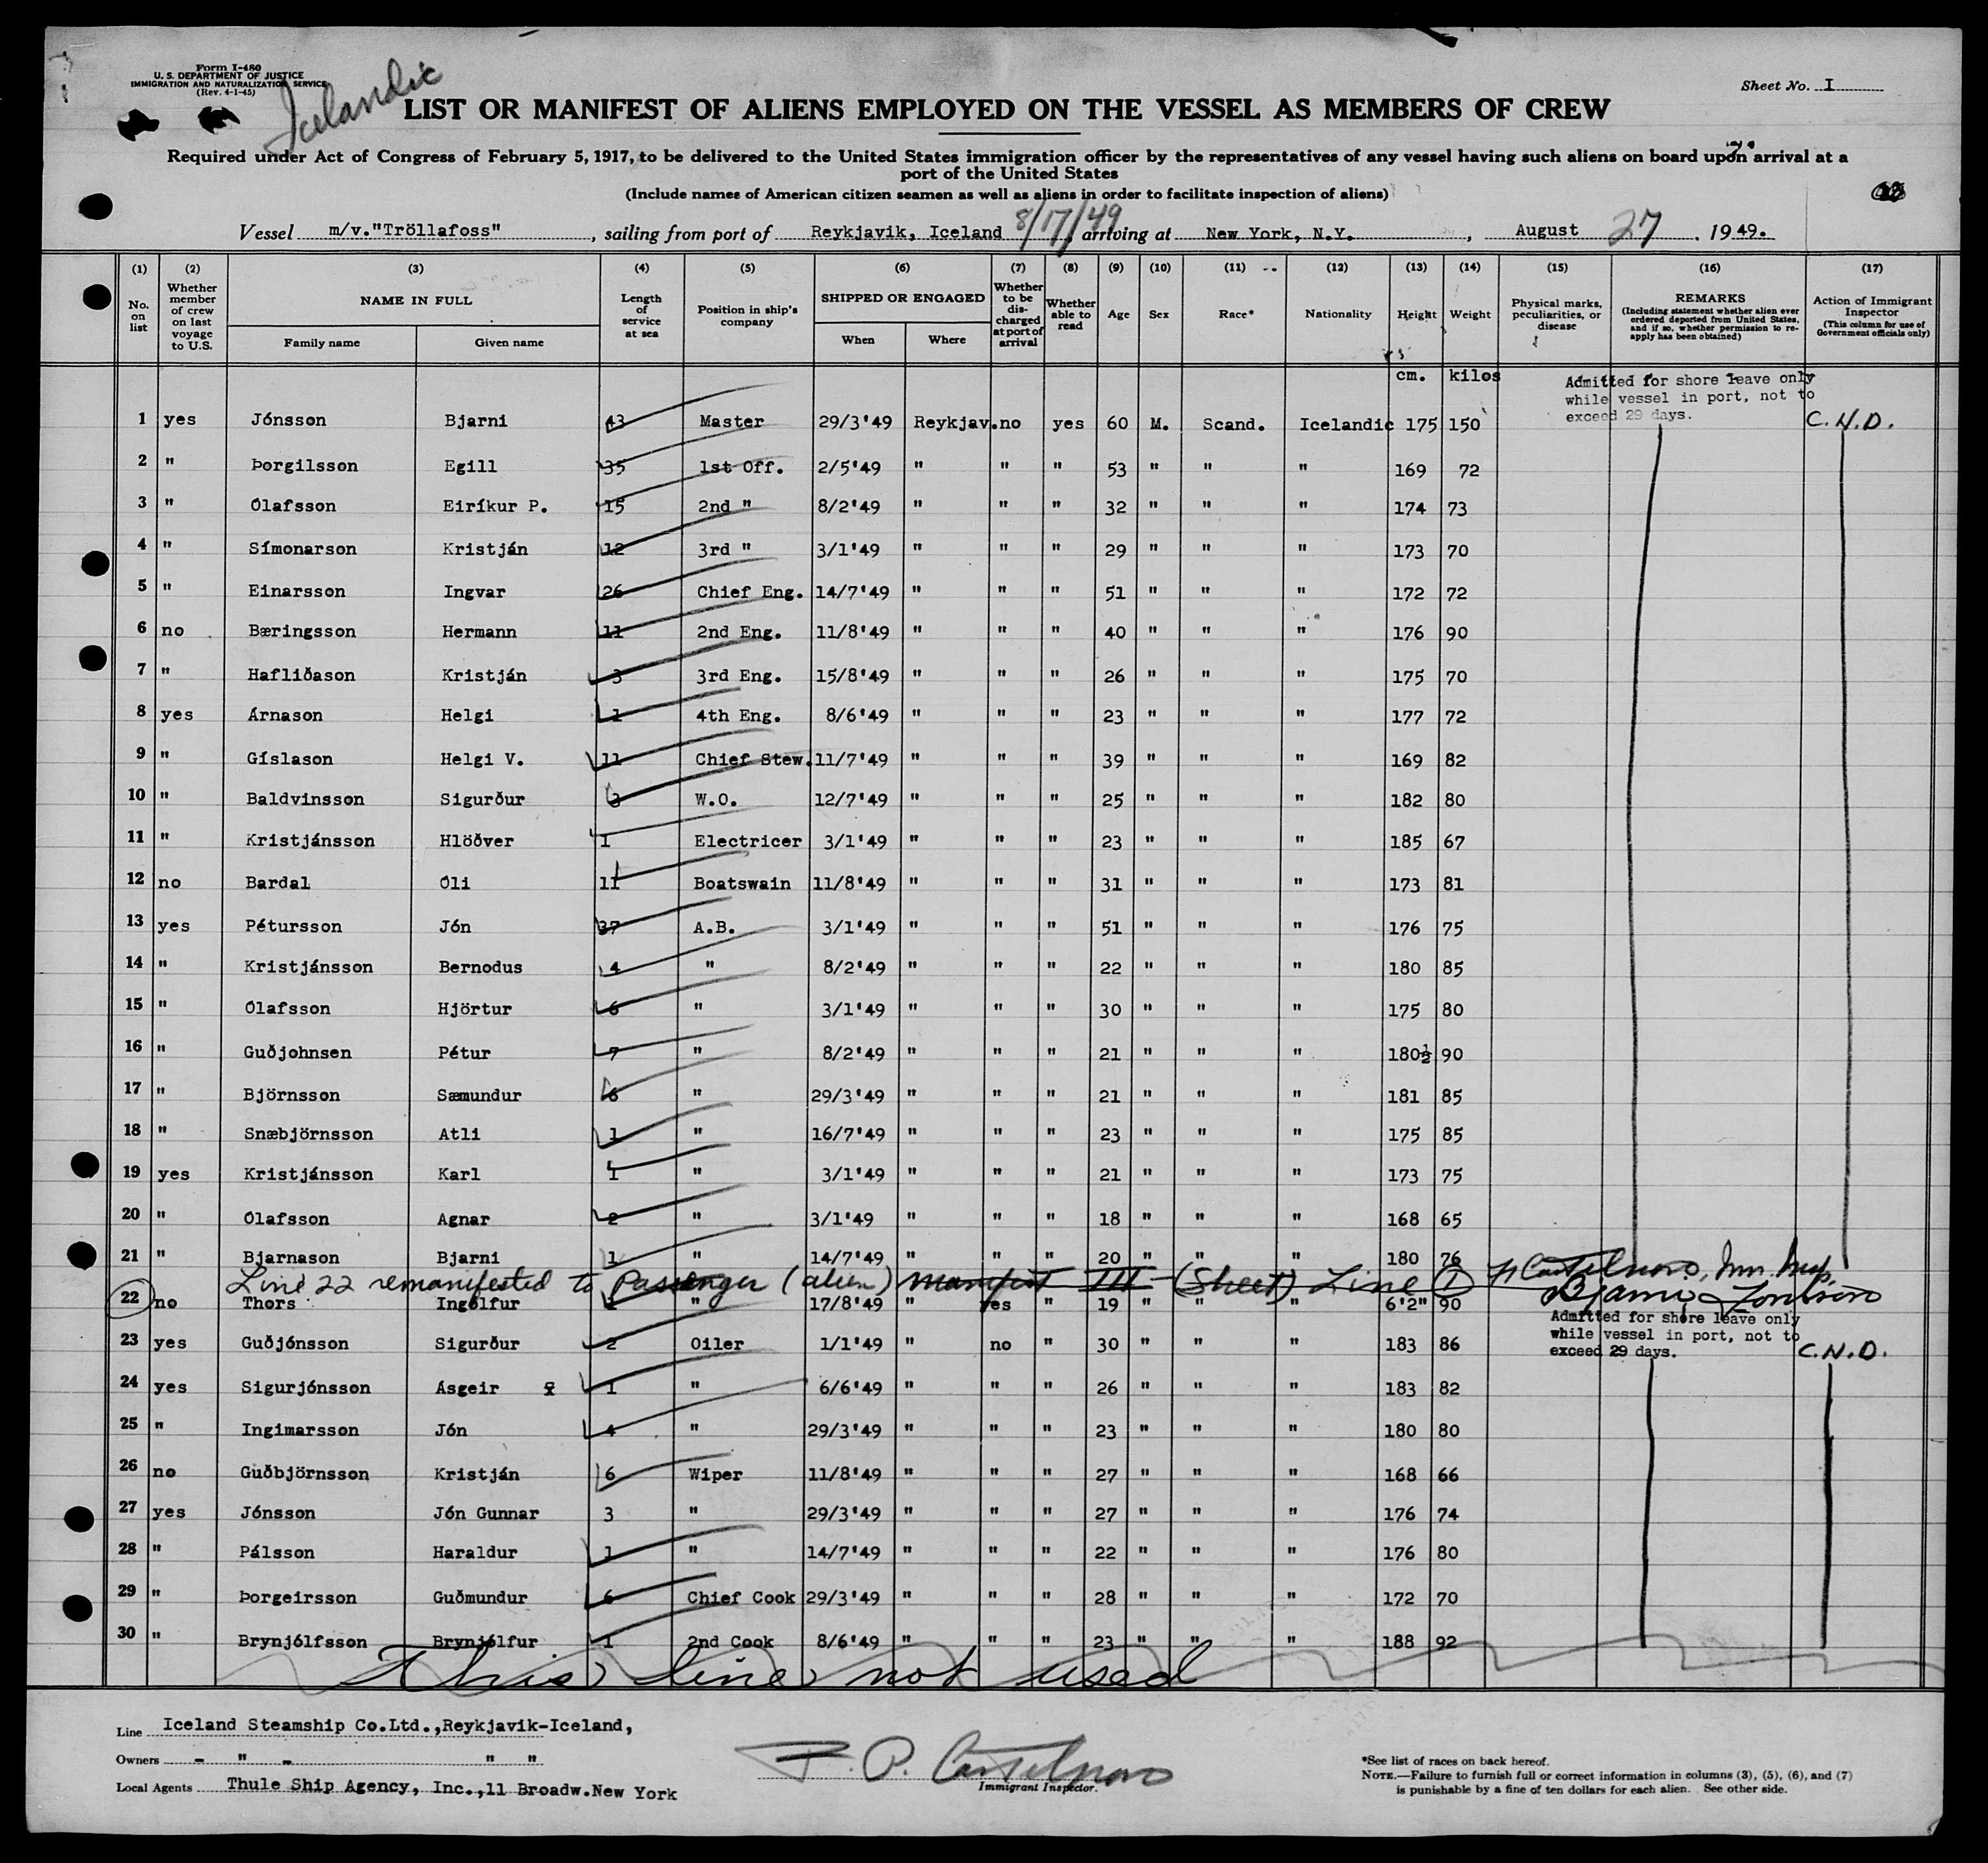 Form I-480
U. S. DEPARTMENT OF JUSTICE
IMMIGRATION AND NATURALIZATION SERVICE
(Rev. 4-1-45)
Icelandic
Sheet No. I
LIST OR MANIFEST OF ALIENS EMPLOYED ON THE VESSEL AS MEMBERS OF CREW
Required under Act of Congress of February 5, 1917, to be delivered to the United States immigration officer by the representatives of any vessel having such aliens on board upon arrival at a
port of the United States
(Include names of American citizen seamen as well as aliens in order to facilitate inspection of aliens)
8/17/49
Vessel m/v."Tröllafoss", sailing from port of Reykjavik, Iceland, arriving at New York, N.Y., August 27, 1949.
(1) (2) (3) (4) (5) (6) (7) (8) (9) (10) (11) (12) (13) (14) (15) (16) (17)
No. on list
Whether member of crew on last voyage to U.S.
NAME IN FULL
Family name Given name
Length of service at sea
Position in ship's company
SHIPPED OR ENGAGED
When Where
Whether to be discharged at port of arrival
Whether able to read
Age Sex Race* Nationality Height Weight
Physical marks, peculiarities, or disease
REMARKS
(Including statement whether alien ever ordered deported from United States, and if so, whether permission to reapply has been obtained)
Action of Immigrant Inspector
(This column for use of Government officials only)
cm. kilos
Admitted for shore leave only
while vessel in port, not to
exceed 29 days.
1 yes Jónsson Bjarni 43 Master 29/3'49 Reykjav. no yes 60 M. Scand. Icelandic 175 150 C.N.D.
2 " Þorgilsson Egill 35 1st Off. 2/5'49 " " " 53 " " " 169 72
3 " Olafsson Eiríkur P. 15 2nd " 8/2'49 " " " 32 " " " 174 73
4 " Símonarson Kristján 12 3rd " 3/1'49 " " " 29 " " " 173 70
5 " Einarsson Ingvar 26 Chief Eng. 14/7'49 " " " 51 " " " 172 72
6 no Bæringsson Hermann 11 2nd Eng. 11/8'49 " " " 40 " " " 176 90
7 " Hafliðason Kristján 3 3rd Eng. 15/8'49 " " " 26 " " " 175 70
8 yes Árnason Helgi 1 4th Eng. 8/6'49 " " " 23 " " " 177 72
9 " Gíslason Helgi V. 11 Chief Stew. 11/7'49 " " " 39 " " " 169 82
10 " Baldvinsson Sigurður 3 W.O. 12/7'49 " " " 25 " " " 182 80
11 " Kristjánsson Hlöðver 1 Electricer 3/1'49 " " " 23 " " " 185 67
12 no Bardal Oli 11 Boatswain 11/8'49 " " " 31 " " " 173 81
13 yes Pétursson Jón 37 A.B. 3/1'49 " " " 51 " " " 176 75
14 " Kristjánsson Bernodus 4 " 8/2'49 " " " 22 " " " 180 85
15 " Olafsson Hjörtur 6 " 3/1'49 " " " 30 " " " 175 80
16 " Guðjohnsen Pétur 7 " 8/2'49 " " " 21 " " " 180½ 90
17 " Björnsson Sæmundur 6 " 29/3'49 " " " 21 " " " 181 85
18 " Snæbjörnsson Atli 1 " 16/7'49 " " " 23 " " " 175 85
19 yes Kristjánsson Karl 1 " 3/1'49 " " " 21 " " " 173 75
20 " Olafsson Agnar 2 " 3/1'49 " " " 18 " " " 168 65
21 " Bjarnason Bjarni 1 " 14/7'49 " " " 20 " " " 180 76
Line 22 remanifested to Passenger (alien) manifest III (Sheet) Line 1 P Castelnovo, Imm. Insp.
22 no Thors Ingólfur 1 " 17/8'49 " yes " 19 " " " 6'2" 90 Bjarni Jónsson
Admitted for shore leave only
while vessel in port, not to
exceed 29 days.
23 yes Guðjónsson Sigurður 2 Oiler 1/1'49 " no " 30 " " " 183 86 C.N.D.
24 yes Sigurjónsson Asgeir 1 " 6/6'49 " " " 26 " " " 183 82
25 " Ingimarsson Jón 4 " 29/3'49 " " " 23 " " " 180 80
26 no Guðbjörnsson Kristján 6 Wiper 11/8'49 " " " 27 " " " 168 66
27 yes Jónsson Jón Gunnar 3 " 29/3'49 " " " 27 " " " 176 74
28 " Pálsson Haraldur 1 " 14/7'49 " " " 22 " " " 176 80
29 " Þorgeirsson Guðmundur 6 Chief Cook 29/3'49 " " " 28 " " " 172 70
30 " Brynjólfsson Brynjólfur 1 2nd Cook 8/6'49 " " " 23 " " " 188 92
This line not used
Line Iceland Steamship Co.Ltd.,Reykjavik-Iceland,
Owners - " - " "
Local Agents Thule Ship Agency, Inc.,11 Broadw.New York
P. P. Castelnovo
Immigrant Inspector.
*See list of races on back hereof.
NOTE.—Failure to furnish full or correct information in columns (3), (5), (6), and (7)
is punishable by a fine of ten dollars for each alien. See other side.